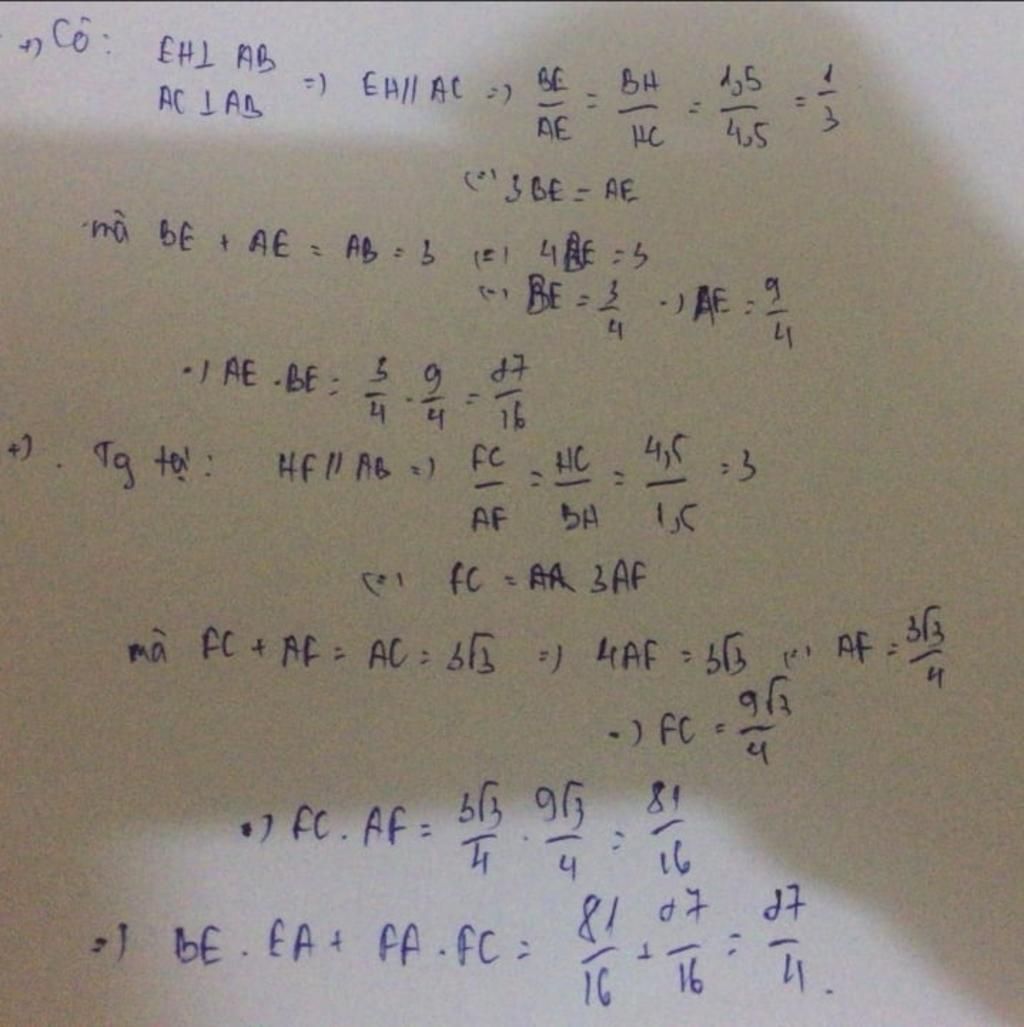 +) Có: EH ⊥ AB
AC ⊥ AB => EH // AC => BE/AE = BH/HC = 1,5/4,5 = 1/3
(=) 3BE = AE
mà BE + AE = AB = 3 (=) 4BE = 3
(=) BE = 3/4 => AE = 9/4
=) AE . BE = 3/4 . 9/4 = 27/16
+) Tg tự: HF // AB =) FC/AF = HC/BH = 4,5/1,5 = 3
(=) FC = 3AF
mà FC + AF = AC = 3√3 =) 4AF = 3√3 (=) AF = 3√3/4
=) FC = 9√3/4
=) FC . AF = 3√3/4 . 9√3/4 = 81/16
=) BE . EA + FA . FC = 81/16 + 27/16 = 27/4.